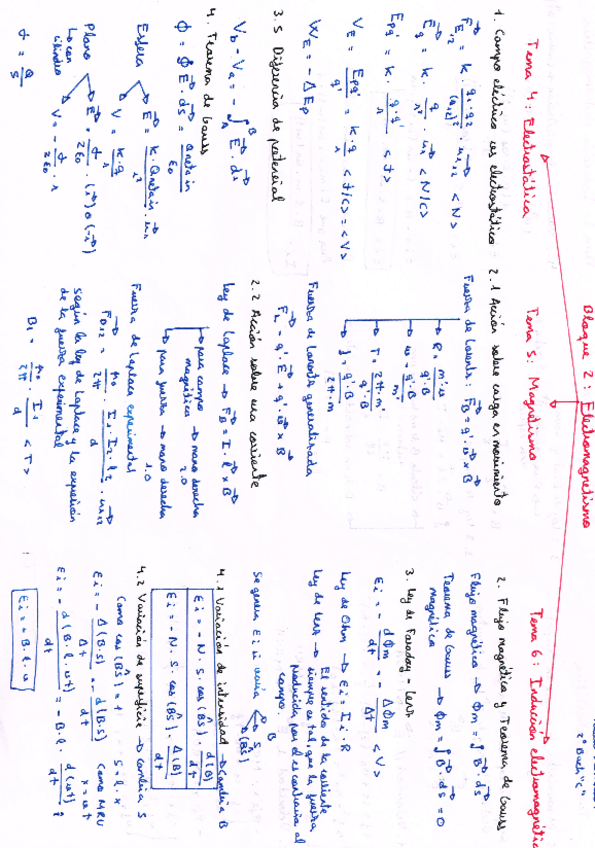 Bloque 2: Electromagnetismo
2º Bach "C"
Tema 4: Electrostática
1. Campo eléctrico
F_E1,2 = K · q1·q2/(r1,2)² · u_r1,2 <N>
E_g = K · q/r² · u_r <N/C>
E_pg' = K · q·q'/r <J>
V_E = E_pg'/q' = K·q/r <J/C> = <V>
W_E = -ΔEp
3.5 Diferencia de potencial
V_b - V_a = -∫_A^B E·dr
4. Teorema de Gauss
Φ = ∮ E·ds = Qneta in/ε0
Esfera
E = K·Qneta in/r² · u_r
V = K·q/r
Plano
Local
cilindro
E = σ/2ε0 · (i) o (-i)
ΔV = -σ/2ε0 · r
σ = Q/S
Tema 5: Magnetismo
2.1 Acción sobre carga en movimiento
Fuerza de Lorentz: F_B = q'·v×B
R = m'·v/q'·B
ω = q'·B/m'
T = 2π·m'/q'·B
f = q'·B/2π·m
Fuerza de Lorentz generalizada
F_L = q'·E + q'·v×B
2.2 Acción sobre una corriente
Ley de Laplace → F_B = I·l×B
para campo magnético → mano derecha 2.0
para fuerza → mano derecha 1.0
Fuerza de Laplace experimental
F_B1,2 = μ0/2π · I1·I2·l2/d · u_r1,2
según la ley de Laplace y la expresión
de la fuerza experimental
B1 = μ0/2π · I1/d <T>
Tema 6: Inducción electromagnética
2. Flujo magnético y Teorema de Gauss
Flujo magnético → Φm = ∫B·ds
Teorema de Gauss → Φm = ∮B·ds = 0
magnético
3. Ley de Faraday - Lenz
Ei = - dΦm/dt = - ΔΦm/Δt <V>
Ley de Ohm → Ei = Ii·R
Ley de Lenz → El sentido de la corriente
siempre es tal, que la fuerza
producida por él es contraria al
campo.
Se genera Ei si varía
B
S
(BS)
4.1 Variación de intensidad → Cambia B
Ei = -N·S·cos(BS)·d(B)/dt
Ei = -N·S·cos(BS)·Δ(B)/dt
4.2 Variación de superficie → cambia S
Como cos(BS) = 1 S = l·x
Ei = -Δ(B·S)/Δt = -d(B·S)/dt Como MRU x = vt
Ei = -d(B·l·vt)/dt = -B·l·d(vt)/dt
Ei = -B·l·v